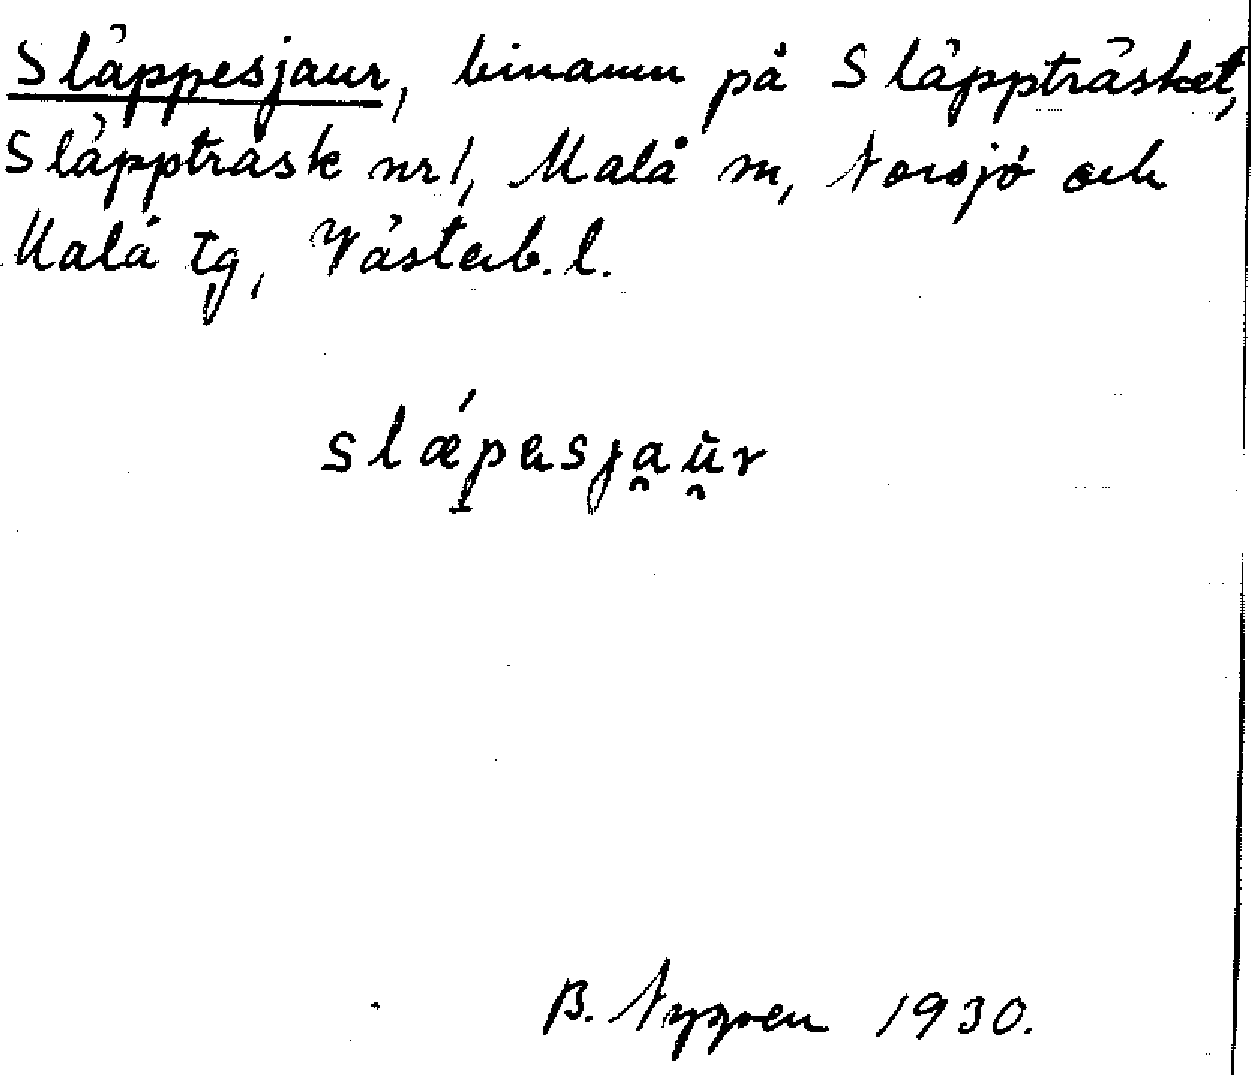 Släppesjaur, binamn på Släppträsket,
Släppträsk nr 1, Malå sn, Norsjö och
Malå tg, Västerb. l.
slǽpesja̯u̯r
B. Nygren 1930.